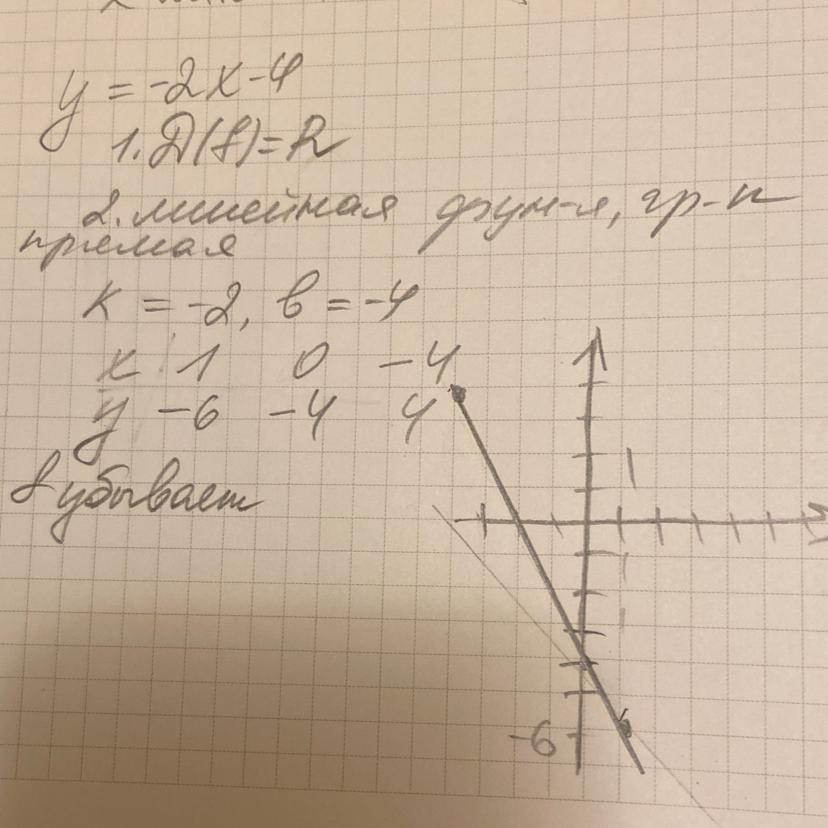 y = -2x-4
1. D(f)=R
2. линейная фун-я, гр-к
прямая
k = -2, b = -4
x 1 0 -4
y -6 -4 4
f убывает
1
-6